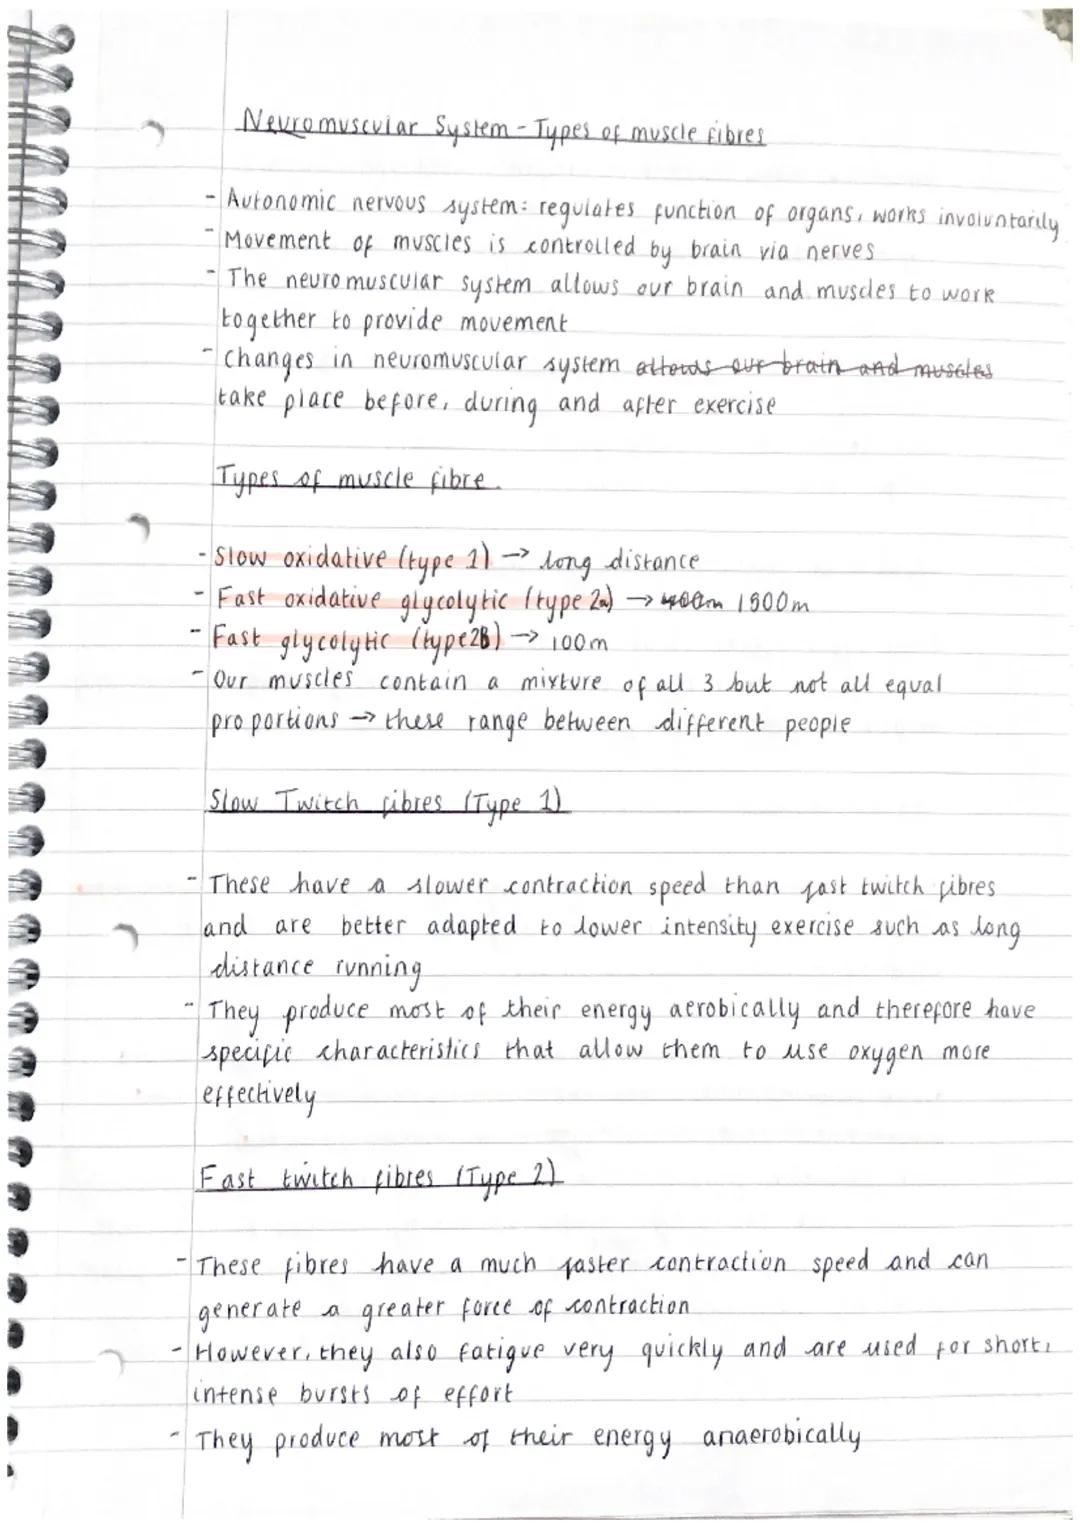 Neuromuscular System - Types of muscle fibres
- Autonomic nervous system: regulates function of organs, works involuntarily
- Movement of muscles is controlled by brain via nerves
- The neuromuscular system allows our brain and muscles to work
together to provide movement
- Changes in neuromuscular system allows our brain and muscles
take place before, during and after exercise
Types of muscle fibre.
- Slow oxidative (type 1) → long distance
- Fast oxidative glycolytic (type 2a) → 400m 1500m
- Fast glycolytic (type 2B) → 100m
- Our muscles contain a mixture of all 3 but not all equal
proportions → these range between different people
Slow Twitch fibres (Type 1)
- These have a slower contraction speed than fast twitch fibres
and are better adapted to lower intensity exercise such as long
distance running
- They produce most of their energy aerobically and therefore have
specific characteristics that allow them to use oxygen more
effectively
Fast twitch fibres (Type 2)
- These fibres have a much faster contraction speed and can
generate a greater force of contraction
- However, they also fatigue very quickly and are used for short,
intense bursts of effort
- They produce most of their energy anaerobically